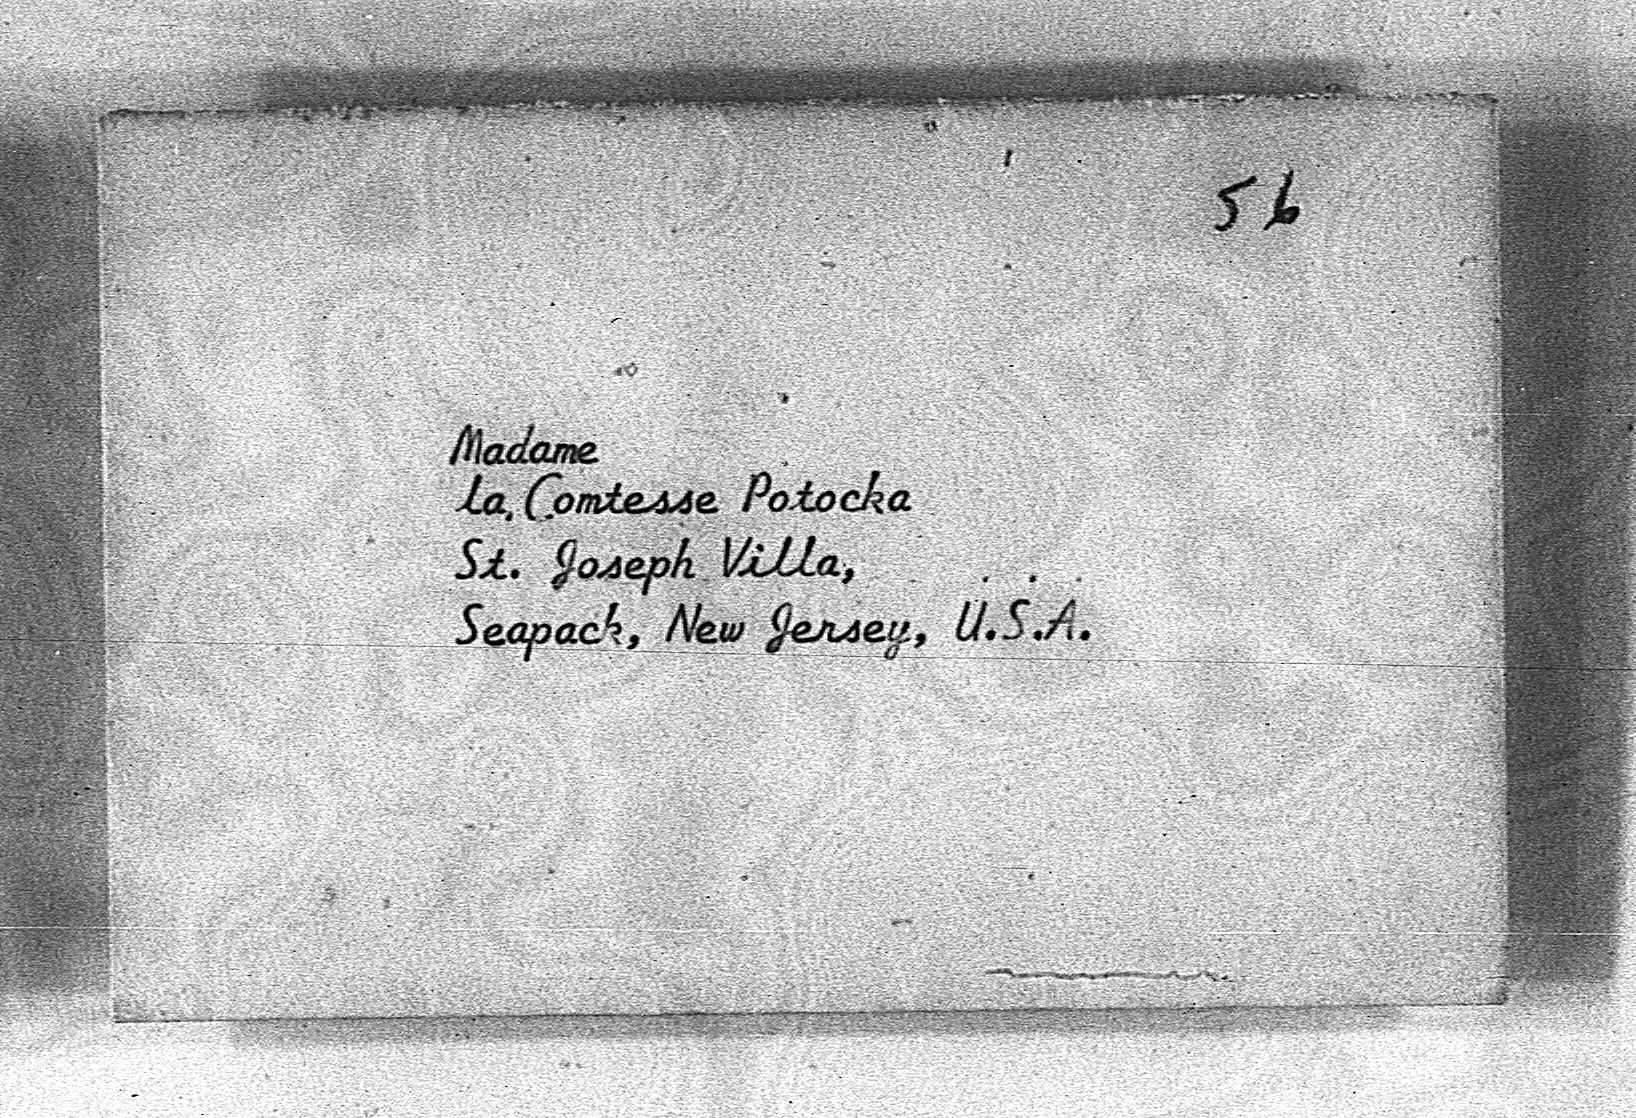 56
Madame
la Comtesse Potocka
St. Joseph Villa,
Seapack, New Jersey, U.S.A.